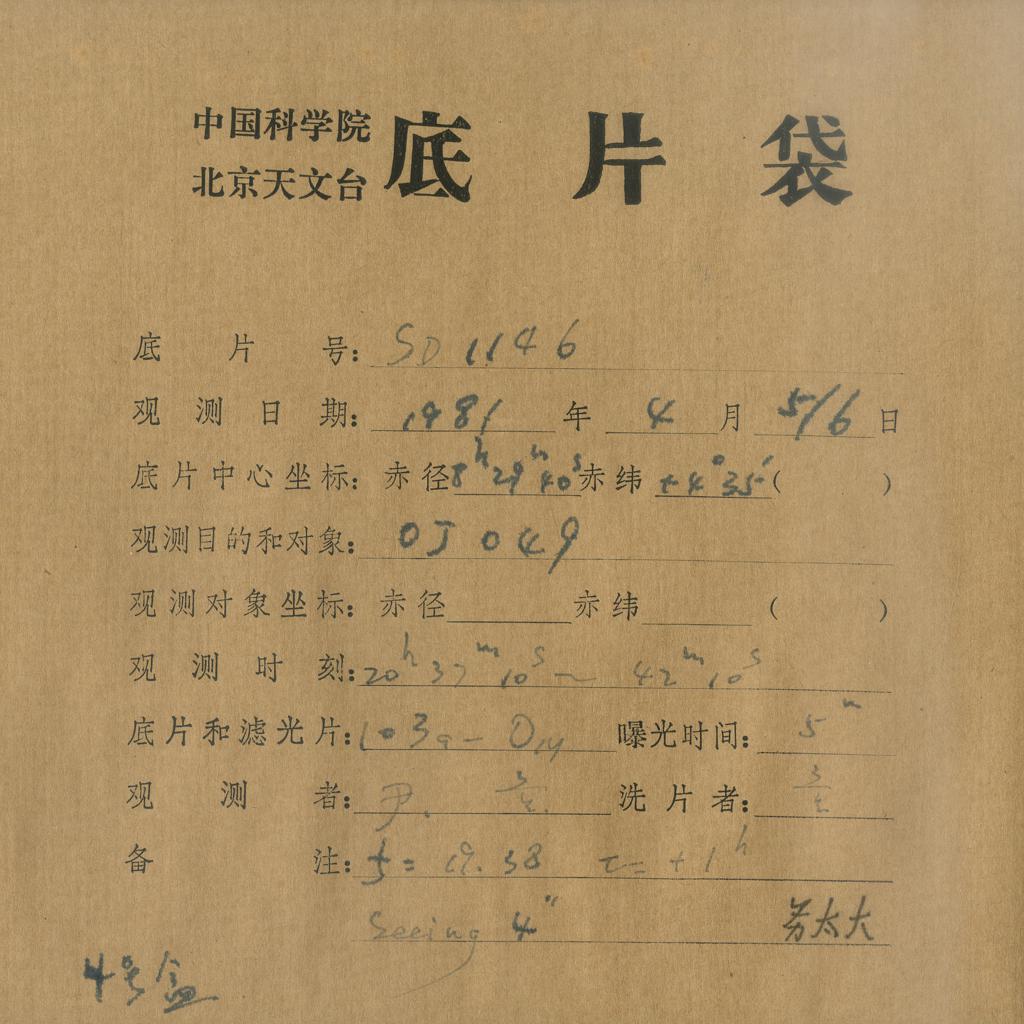 中国科学院
北京天文台
底片袋
底片号: SD 1146
观测日期: 1981年4月5/6日
底片中心坐标: 赤径8h29m40s赤纬+4°35′( )
观测目的和对象: OJ 049
观测对象坐标: 赤径 赤纬 ( )
观测时刻: 20h37m10s~42m10s
底片和滤光片: 103a-O 曝光时间: 5m
观测者: 尹. 洗片者:
备注: f= 19.38 τ=+1h
Seeing 4″ 太大
4号盒